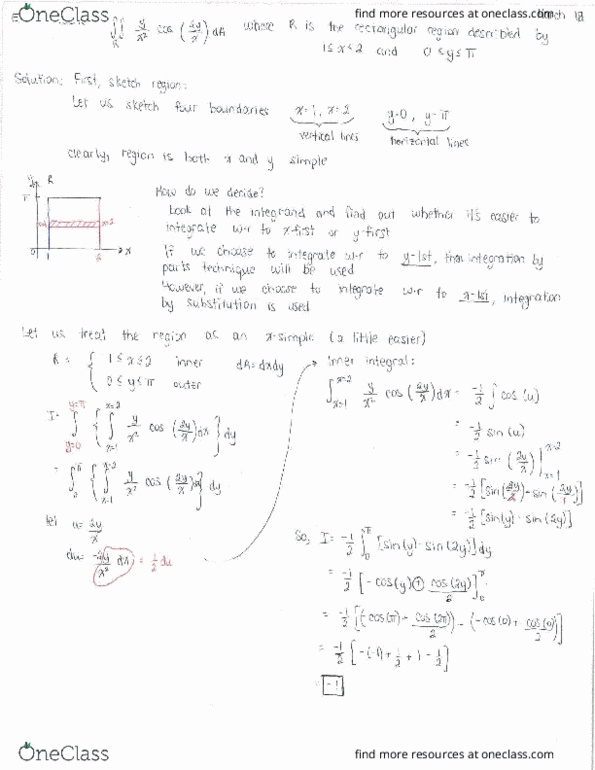 OneClass
find more resources at oneclass.com
March 12
∫∫_R y/x² cos (2y/x) dA where R is the rectangular region described by
1≤x≤2 and 0≤y≤π
Solution: First, sketch region:
Let us sketch four boundaries x=1, x=2 y=0, y=π
vertical lines horizontal lines
clearly, region is both x and y simple
R
π
x=2
0 1 2 x
How do we decide?
Look at the integrand and find out whether it's easier to
integrate w·r to x-first or y-first
If we choose to integrate w·r to y-1st, then integration by
parts technique will be used
However, if we choose to integrate w·r to x-1st, integration
by substitution is used
Let us treat the region as an x-simple (a little easier)
R = { 1≤x≤2 inner dA=dxdy
0≤y≤π outer
I = ∫_{y=0}^{y=π} { ∫_{x=1}^{x=2} y/x² cos (2y/x) dx } dy
= ∫_0^π { ∫_{x=1}^{x=2} y/x² cos (2y/x) } dy
let u = 2y/x
du = -2y/x² dx = 1/2 du
inner integral:
∫_{x=1}^{x=2} y/x² cos (2y/x) dx = -1/2 ∫ cos(u)
= -1/2 sin(u)
= -1/2 sin (2y/x) |_{x=1}^{x=2}
= -1/2 [sin(2y/2) - sin(2y/1)]
= -1/2 [sin(y) - sin(2y)]
So, I = -1/2 ∫_0^π [sin(y) - sin(2y)] dy
= -1/2 [-cos(y) + cos(2y)/2]_0^π
= -1/2 [(-cos(π) - cos(2π)/2) - (-cos(0) + cos(0)/2)]
= -1/2 [-(-1) + 1/2 + 1 - 1/2]
= -1
OneClass
find more resources at oneclass.com